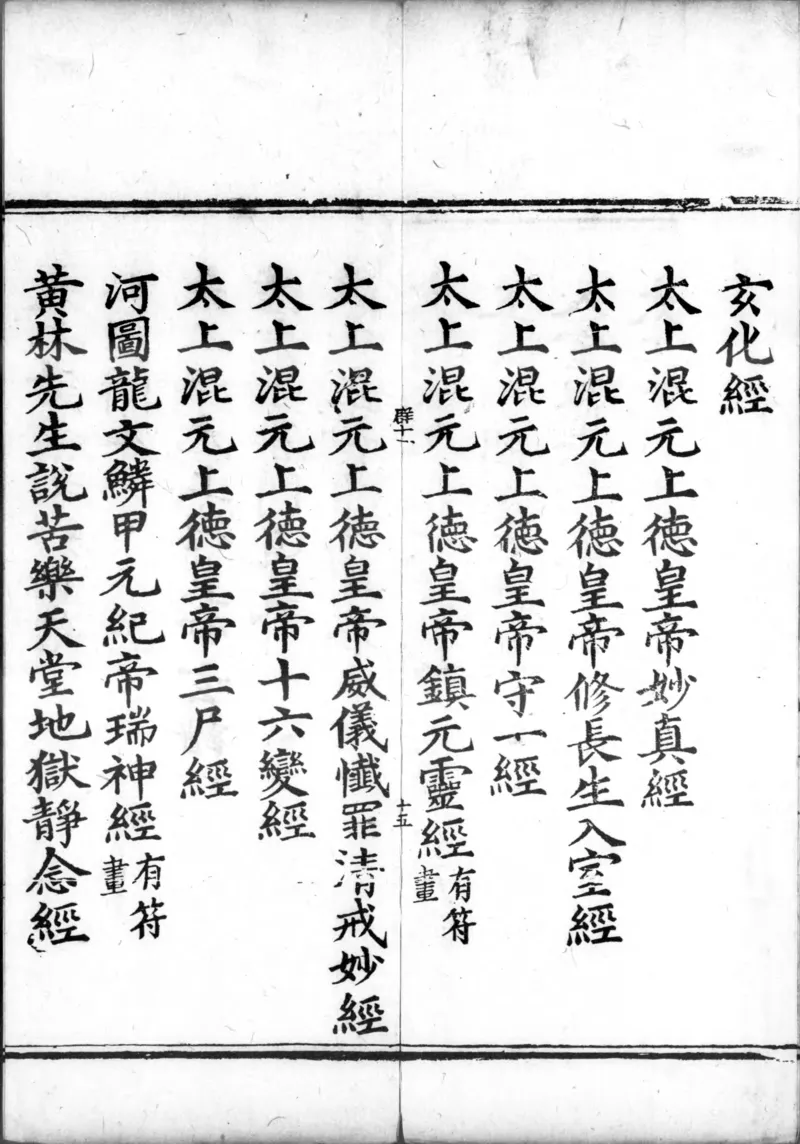 玄化經
太上混元上德皇帝妙真經
太上混元上德皇帝修長生入室經
太上混元上德皇帝守一經
太上混元上德皇帝鎮元靈經有符畫
群十一
十五
太上混元上德皇帝威儀懺罪清戒妙經
太上混元上德皇帝十六變經
太上混元上德皇帝三尸經
河圖龍文鱗甲元紀帝瑞神經有符畫
黃林先生說苦樂天堂地獄靜念經